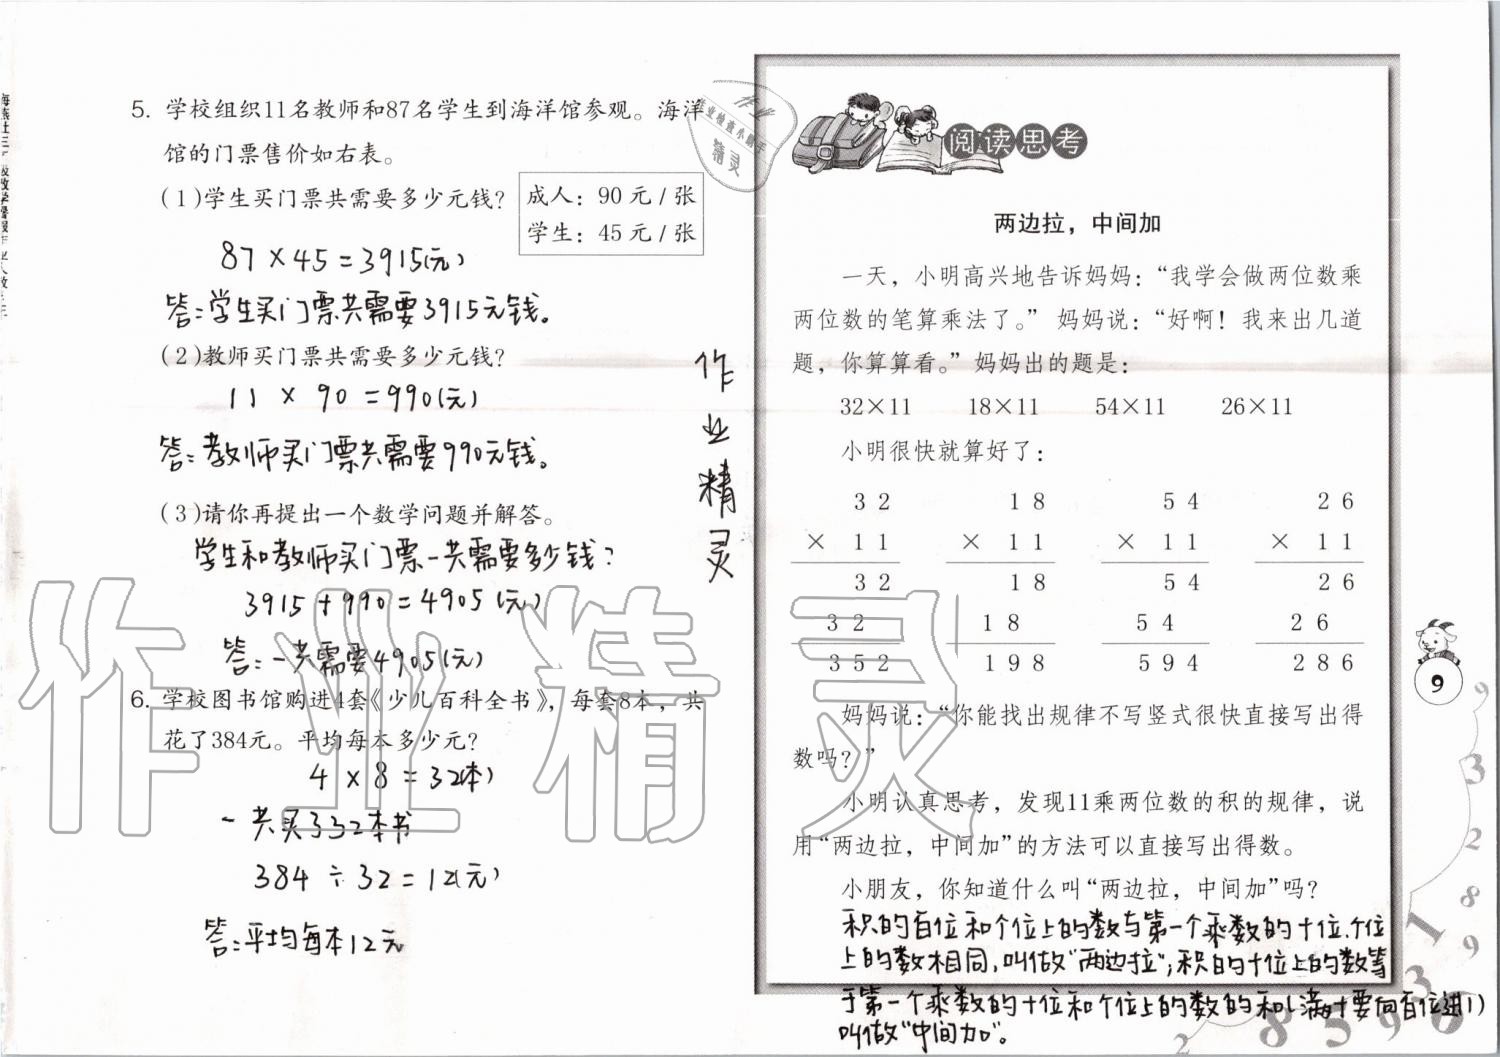 5. 学校组织11名教师和87名学生到海洋馆参观。海洋
馆的门票售价如右表。
(1)学生买门票共需要多少元钱?
成人：90元/张
学生：45元/张
87×45=3915(元)
答:学生买门票共需要3915元钱。
(2)教师买门票共需要多少元钱?
11×90=990(元)
答:教师买门票共需要990元钱。
(3)请你再提出一个数学问题并解答。
学生和教师买门票一共需要多少钱?
3915+990=4905(元)
答:一共需要4905(元)
6. 学校图书馆购进4套《少儿百科全书》，每套8本，共
花了384元。平均每本多少元?
4×8=32(本)
一共买了32本书
384÷32=12(元)
答:平均每本12元
作业精灵
作业精灵
阅读思考
两边拉，中间加
一天，小明高兴地告诉妈妈：“我学会做两位数乘
两位数的笔算乘法了。” 妈妈说：“好啊！我来出几道
题，你算算看。” 妈妈出的题是：
32×11 18×11 54×11 26×11
小明很快就算好了：
32 18 54 26
×11 ×11 ×11 ×11
32 18 54 26
32 18 54 26
352 198 594 286
妈妈说：“你能找出规律不写竖式很快直接写出得
数吗？”
小明认真思考，发现11乘两位数的积的规律，说
用“两边拉，中间加”的方法可以直接写出得数。
小朋友，你知道什么叫“两边拉，中间加”吗？
积的百位和个位上的数与第一个乘数的十位、个位
上的数相同,叫做“两边拉”;积的十位上的数等
于第一个乘数的十位和个位上的数的和(满十要向百位进1)
叫做“中间加”。
9